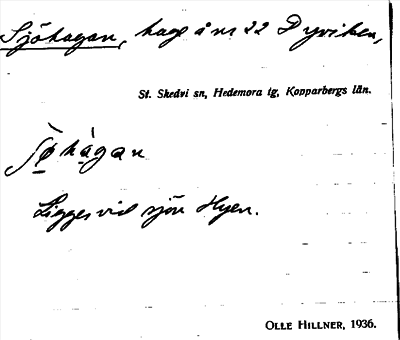 Sjöhagan, hage å nr 22 Dyviken,
St. Skedvi sn, Hedemora tg, Kopparbergs län.
Ligger vid sjön Hyen.
OLLE HILLNER, 1936.